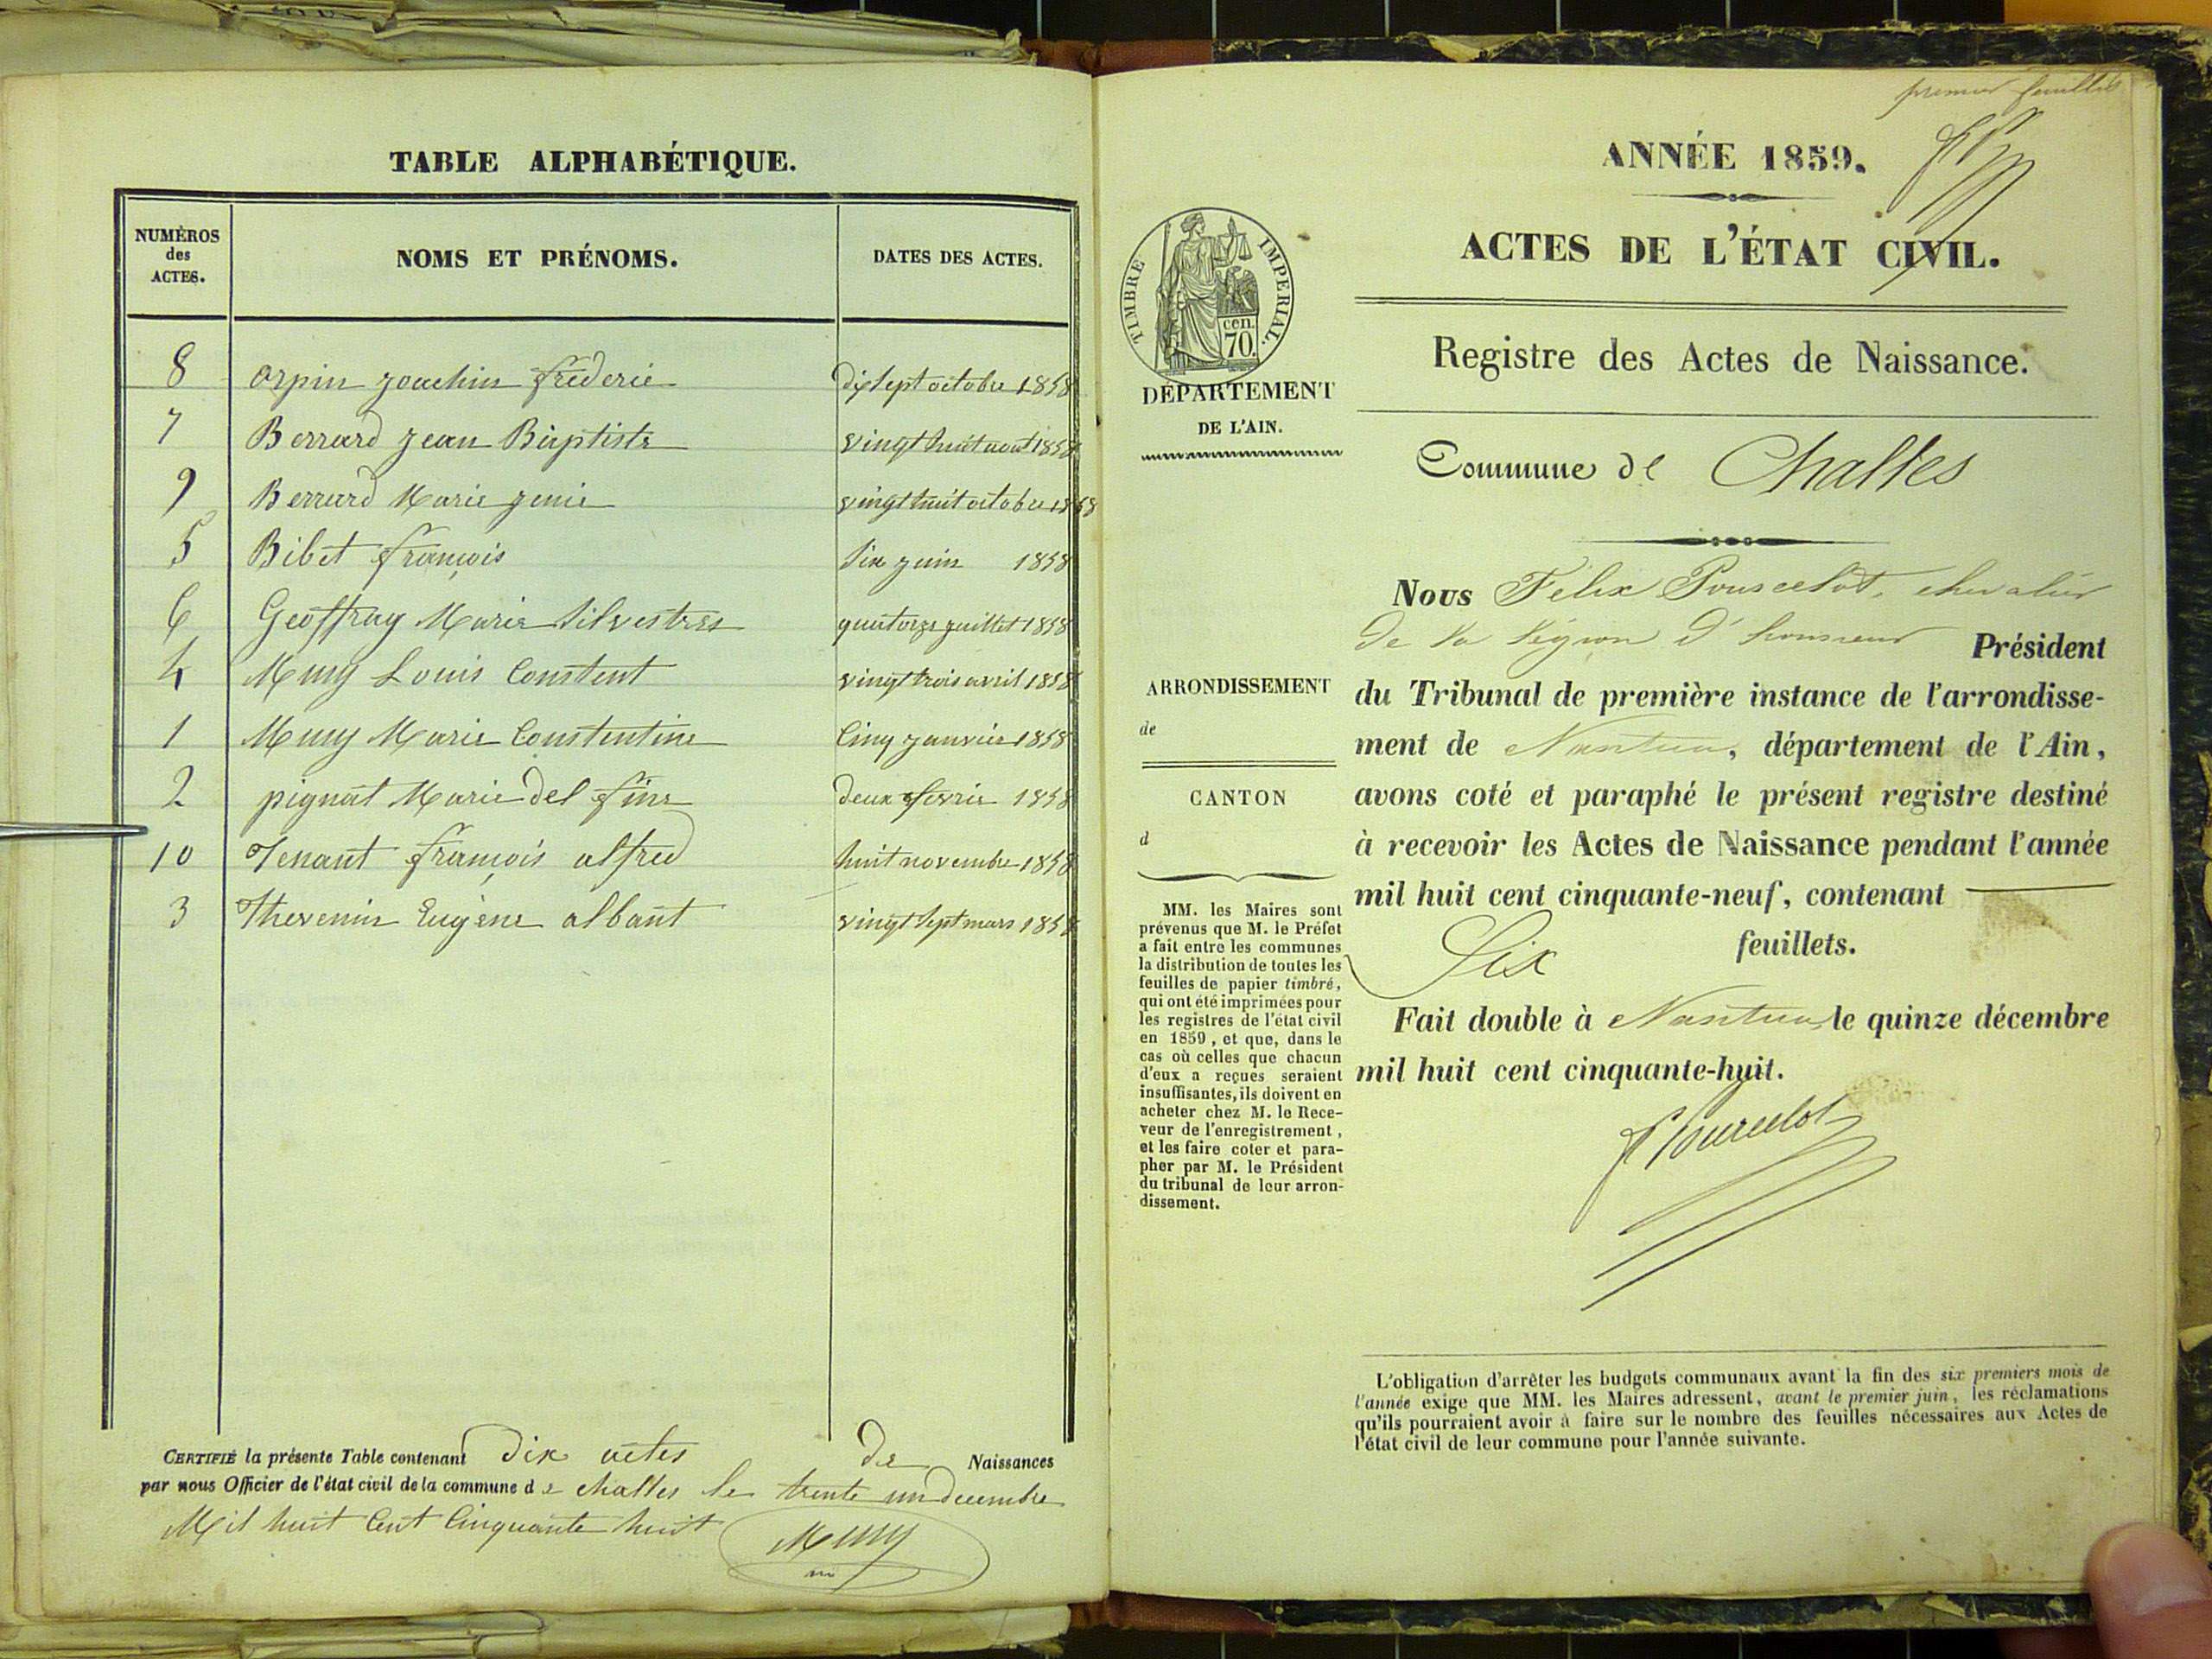 TABLE ALPHABÉTIQUE.
NUMÉROS des ACTES.
NOMS ET PRÉNOMS.
DATES DES ACTES.
8 orpin joachin frederic dix sept octobre 1858
7 Berrard jean Baptiste vingt huit aout 1858
9 Berrard Marie jenie vingt huit octobre 1858
5 Bibet françois Six juin 1858
6 Geoffray Marie Silvestres quatorze juillet 1858
4 Muy Louis Constent vingt trois avril 1858
1 Muy Marie Constentine Cinq janvier 1858
2 pignat Marie del fine deux fevrie 1858
10 Tenant françois alfred huit novembre 1858
3 Thevenin Eugène albant vingt Sept mars 1858
CERTIFIÉ la présente Table contenant Dix actes de Naissances
par nous Officier de l'état civil de la commune de challes le trente un decembre
Mil huit Cent Cinquante huit Muy
premier feuillet
ANNÉE 1859.
ACTES DE L'ÉTAT CIVIL.
TIMBRE IMPÉRIAL.
cen.
70.
Registre des Actes de Naissance.
DÉPARTEMENT
DE L'AIN.
Commune de Challes
Nous Félix Pourcelot, chevalier
de la légion d'honneur Président
du Tribunal de première instance de l'arrondisse-
ment de Nantua, département de l'Ain,
avons coté et paraphé le présent registre destiné
à recevoir les Actes de Naissance pendant l'année
mil huit cent cinquante-neuf, contenant
Six feuillets.
Fait double à Nantua le quinze décembre
mil huit cent cinquante-huit.
F Pourcelot
ARRONDISSEMENT
de
CANTON
d
MM. les Maires sont
prévenus que M. le Préfet
a fait entre les communes
la distribution de toutes les
feuilles de papier timbré,
qui ont été imprimées pour
les registres de l'état civil
en 1859, et que, dans le
cas où celles que chacun
d'eux a reçues seraient
insuffisantes, ils doivent en
acheter chez M. le Rece-
veur de l'enregistrement,
et les faire coter et para-
pher par M. le Président
du tribunal de leur arron-
dissement.
L'obligation d'arrêter les budgets communaux avant la fin des six premiers mois de
l'année exige que MM. les Maires adressent, avant le premier juin, les réclamations
qu'ils pourraient avoir à faire sur le nombre des feuilles nécessaires aux Actes de
l'état civil de leur commune pour l'année suivante.